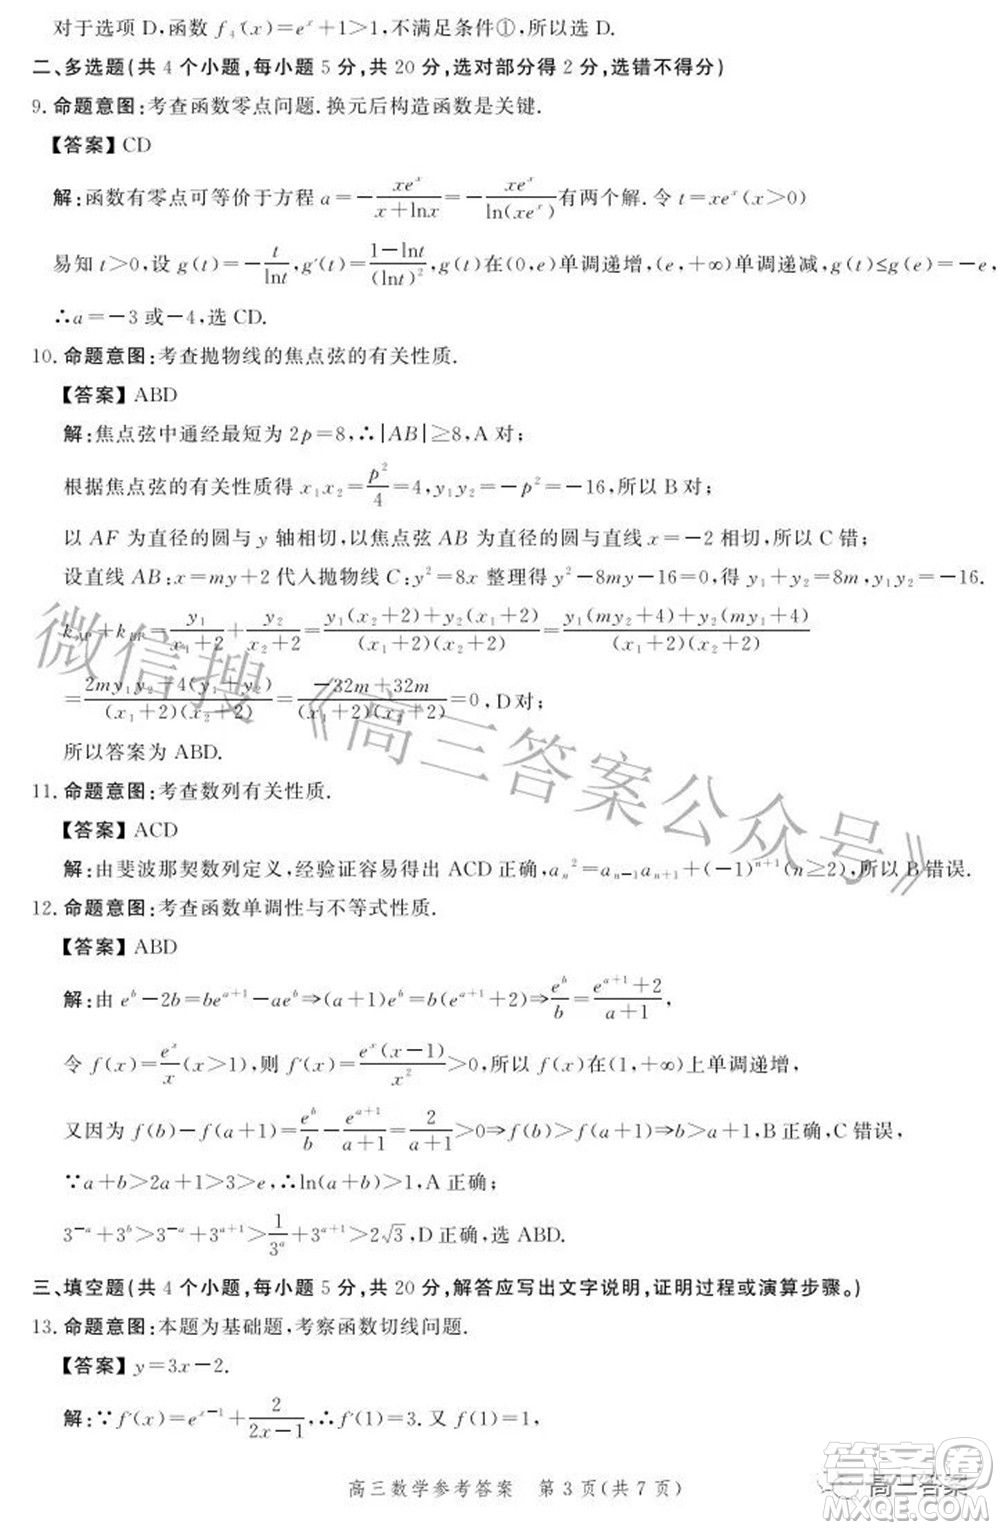 对于选项 D,函数 f₄′(x)=eˣ+1>1,不满足条件①,所以选 D.
二、多选题(共 4 个小题,每小题 5 分,共 20 分,选对部分得 2 分,选错不得分)
9. 命题意图:考查函数零点问题.换元后构造函数是关键.
【答案】CD
解:函数有零点可等价于方程 a=−xeˣ/(x+lnx)=−xeˣ/ln(xeˣ)有两个解.令 t=xeˣ(x>0)
易知 t>0,设 g(t)=−t/lnt,g′(t)=(1−lnt)/(lnt)²,g(t)在(0,e)单调递增,(e,+∞)单调递减,g(t)≤g(e)=−e,
∴a=−3 或−4,选 CD.
10. 命题意图:考查抛物线的焦点弦的有关性质.
【答案】ABD
解:焦点弦中通经最短为 2p=8,∴|AB|≥8,A 对;
根据焦点弦的有关性质得 x₁x₂=p²/4=4,y₁y₂=−p²=−16,所以 B 对;
以 AF 为直径的圆与 y 轴相切,以焦点弦 AB 为直径的圆与直线 x=−2 相切,所以 C 错;
设直线 AB:x=my+2 代入抛物线 C:y²=8x 整理得 y²−8my−16=0,得 y₁+y₂=8m,y₁y₂=−16.
+ =y₁/(x₁+2)+y₂/(x₂+2)=(y₁(x₂+2)+y₂(x₁+2))/((x₁+2)(x₂+2))=(y₁(my₂+4)+y₂(my₁+4))/((x₁+2)(x₂+2))
=(2my₁y₂+4(y₁+y₂))/((x₁+2)(x₂+2))=(−32m+32m)/((x₁+2)(x₂+2))=0,D 对;
所以答案为 ABD.
11. 命题意图:考查数列有关性质.
【答案】ACD
解:由斐波那契数列定义,经验证容易得出 ACD 正确,aₙ²=aₙ₋₁aₙ₊₁+(−1)ⁿ⁺¹(n≥2),所以 B 错误.
12. 命题意图:考查函数单调性与不等式性质.
【答案】ABD
解:由 eᵇ−2b=beᵃ⁺¹−aeᵇ⇒(a+1)eᵇ=b(eᵃ⁺¹+2)⇒eᵇ/b=(eᵃ⁺¹+2)/(a+1),
令 f(x)=eˣ/x(x>1),则 f′(x)=eˣ(x−1)/x²>0,所以 f(x)在(1,+∞)上单调递增,
又因为 f(b)−f(a+1)=eᵇ/b−eᵃ⁺¹/(a+1)=2/(a+1)>0⇒f(b)>f(a+1)⇒b>a+1,B 正确,C 错误,
∵a+b>2a+1>3>e,∴ln(a+b)>1,A 正确;
3⁻ᵃ+3ᵇ>3⁻ᵃ+3ᵃ⁺¹>1/3ᵃ+3ᵃ⁺¹>2√3,D 正确,选 ABD.
三、填空题(共 4 个小题,每小题 5 分,共 20 分,解答应写出文字说明,证明过程或演算步骤。)
13. 命题意图:本题为基础题,考察函数切线问题.
【答案】y=3x−2.
解:∵f′(x)=eˣ⁻¹+2/(2x−1),∴f′(1)=3.又 f(1)=1,
高三数学参考答案 第 3 页(共 7 页)
微信搜《高三答案公众号》
高三答案
答案圈
MXQE.COM